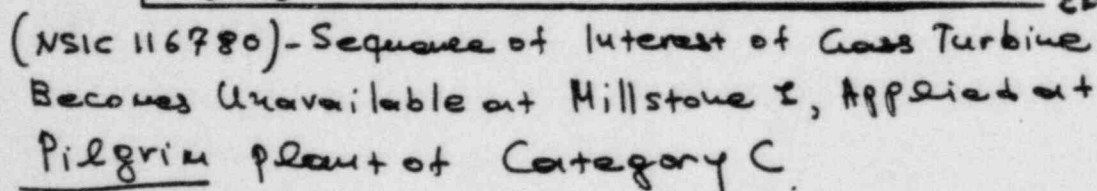 (NSIC 116780) - Sequence of Interest of Gass Turbine
Becomes Unavailable at Millstone 1, Applied at
Pilgrim plant of Category C